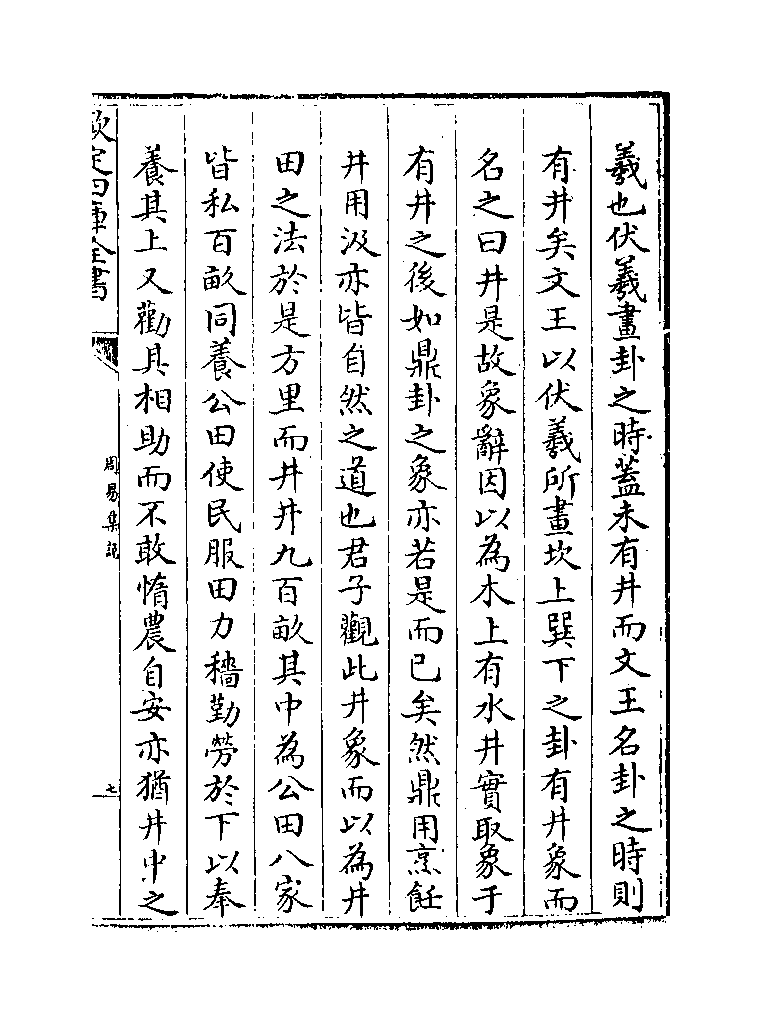 羲也伏羲畫卦之時蓋未有井而文王名卦之時則
有井矣文王以伏羲所畫坎上巽下之卦有井象而
名之曰井是故象辭因以為木上有水井實取象于
有井之後如鼎卦之象亦若是而已矣然鼎用烹飪
井用汲亦皆自然之道也君子觀此井象而以為井
田之法於是方里而井井九百畝其中為公田八家
皆私百畝同養公田使民服田力穡勤勞於下以奉
養其上又勸其相助而不敢惰農自安亦猶井中之
欽定四庫全書
周易集說
七